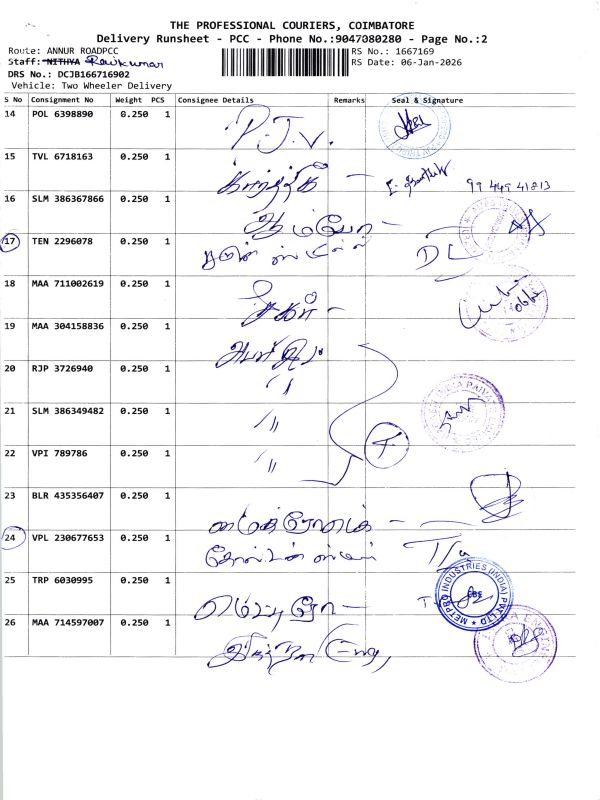 THE PROFESSIONAL COURIERS, COIMBATORE
Delivery Runsheet - PCC - Phone No.:9047080280 - Page No.:2
Route: ANNUR ROADPCC RS No.: 1667169
Staff: NITHYA Ravikumar RS Date: 06-Jan-2026
DRS No.: DCJB166716902
Vehicle: Two Wheeler Delivery
S No Consignment No Weight PCS Consignee Details Remarks Seal & Signature
14 POL 6398890 0.250 1 P.J.V.
15 TVL 6718163 0.250 1 கார்த்திக் 99 449 41813
16 SLM 386367866 0.250 1
17 TEN 2296078 0.250 1 DL
18 MAA 711002619 0.250 1
19 MAA 304158836 0.250 1
20 RJP 3726940 0.250 1 "
21 SLM 386349482 0.250 1 "
22 VPI 789786 0.250 1 "
23 BLR 435356407 0.250 1
24 VPL 230677653 0.250 1
25 TRP 6030995 0.250 1 மெட்புரோ METPRO INDUSTRIES (INDIA) PVT LTD CBE
26 MAA 714597007 0.250 1